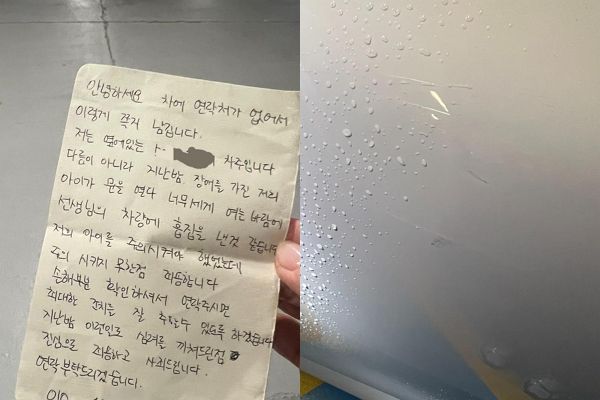 안녕하세요 차에 연락처가 없어서
이렇게 쪽지 남깁니다.
저는 옆에있는 차주입니다
다름이 아니라 지난밤 장애를 가진 저희
아이가 문을 열다 너무세게 여는바람에
선생님의 차량에 흠집을 낸것 같습니다
저희 아이를 주의시켜야 했었는데
주의 시키지 못한점 죄송합니다
손해부분 확인하셔서 연락주시면
최대한 조치를 잘 취할수 있도록 하겠습니다
지난밤 이런일로 심려를 끼쳐드린점
진심으로 죄송하고 사죄드립니다.
연락부탁드리겠습니다.
010